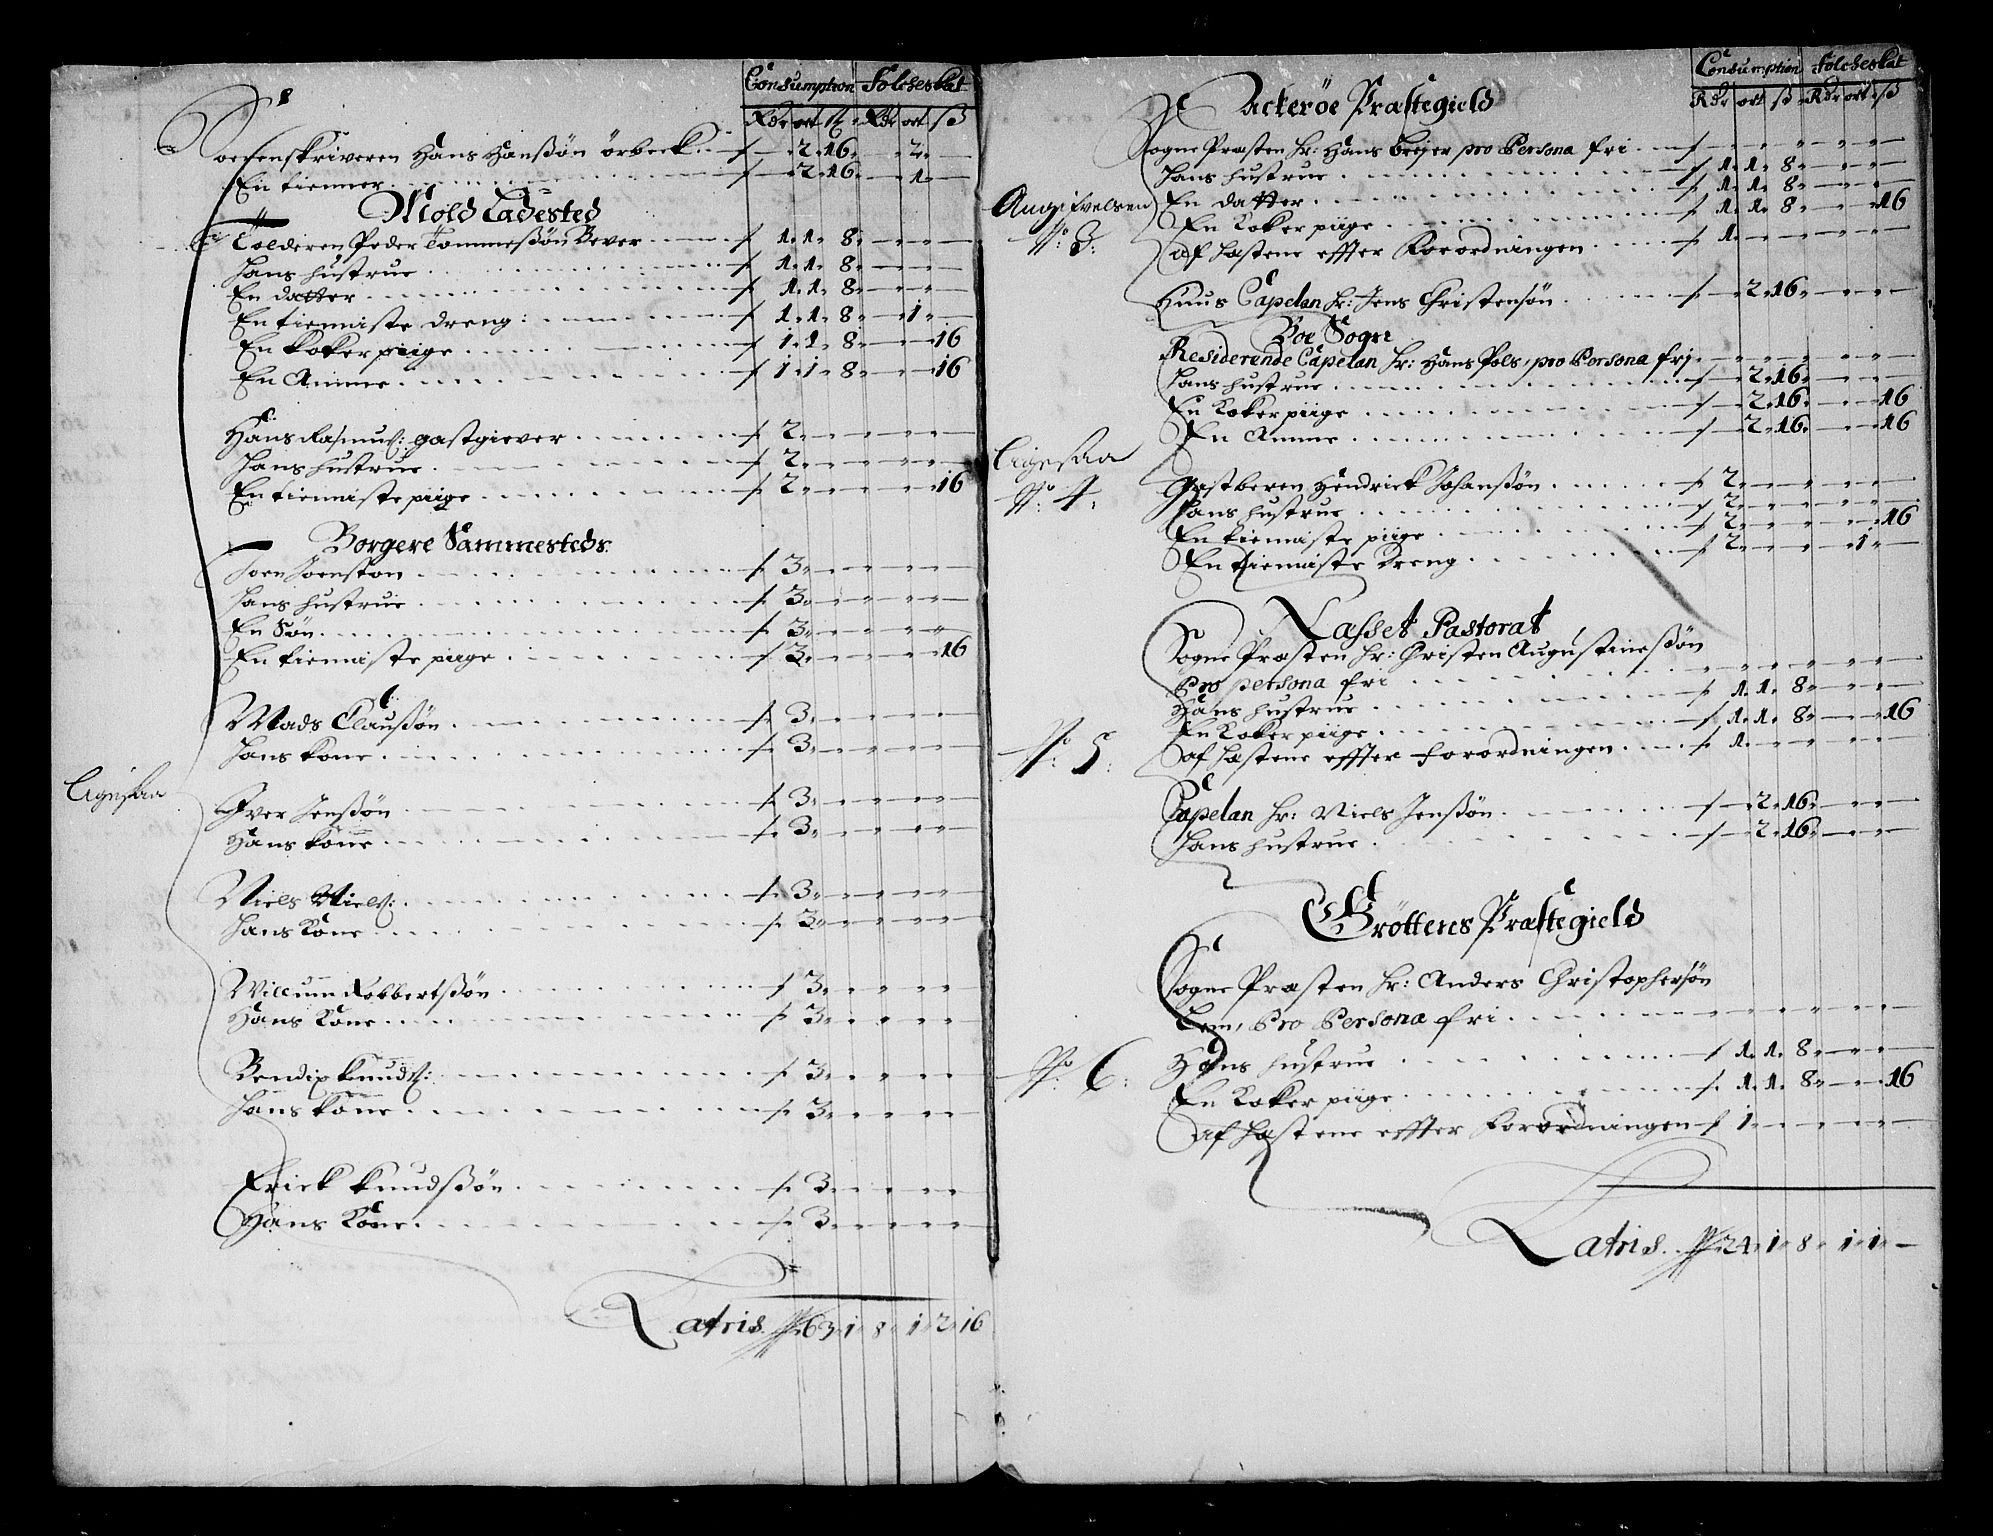 Consumption Folcheskat
Rdr ort ß Rdr ort ß
Soerenskriveren Hans Hanßøn örbeck - 2 16 - 2 -
En tienner - 2 16 - 1 -
Mold Ladested
Tolderen Peder Tommeßøn Bever 1 1 8
Hans hustrue 1 1 8
En datter 1 1 8
En tienniste dreng 1 1 8 - 1 -
En koker piige 1 1 8 - - 16
En Amme 1 1 8 - - 16
Hans Rasmuß: gastgiever 2
Hans hustrue 2
En tienniste piige 2 - - - - 16
Borgere Sammesteds
Joen Joenston 3
Hans hustrue 3
En Søn 3
En tienniste piige 3 - - - - 16
Mads Claußøn 3
Hans kone 3
Ligesaa
Iver Jenßøn 3
Hans kone 3
Niels Nielß: 3
Hans Kone 3
Willum Robbertßøn 3
Hans Kone 3
Bendix Knudß: 3
Hans kone 3
Erick Knudßøn 3
Hans Kone 3
Latris 63 1 8 1 2 16
Consumption Folcheskat
Rdr ort ß Rdr ort ß
Ackeröe Præstegield
Sogne Præsten Hr: Hans Beyer pro Persona fri
Hans hustrue 1 1 8
Angifvelsen
No 3:
En datter 1 1 8
En Koker piige 1 1 8 - - 16
af Hæstene effter Forordningen 1
Huus Capelan Hr: Jens Christensøn - 2 16
Boe Sogn
Residerende Capelan Hr: Hans Pols, pro Persona fri
Hans hustrue - 2 16
En Koker piige - 2 16 - - 16
En Amme - 2 16 - - 16
Ligesaa
No: 4:
Giestberen Hendrick Johanßøn 2
Hans hustrue 2
En tienniste piige 2 - - - - 16
En tienniste dreng 2 - - - 1 -
Vasset Pastorat
Sogne Præsten Hr: Christen Augustineßøn
Pro persona fri
Hans hustrue 1 1 8
En Koker piige 1 1 8 - - 16
No: 5:
af Hæstene effter Forordningen 1
Capelan Hr: Niels Jenßøn - 2 16
Hans hustrue - 2 16
Gröttens Præstegield
Sogne Præsten Hr: Anders Christophersøn
Lem, Pro Persona fri
Hans hustrue 1 1 8
No: 6:
En Koker piige 1 1 8 - - 16
af Hæstene effter Forordningen 1
Latris 24 1 8 1 1 -